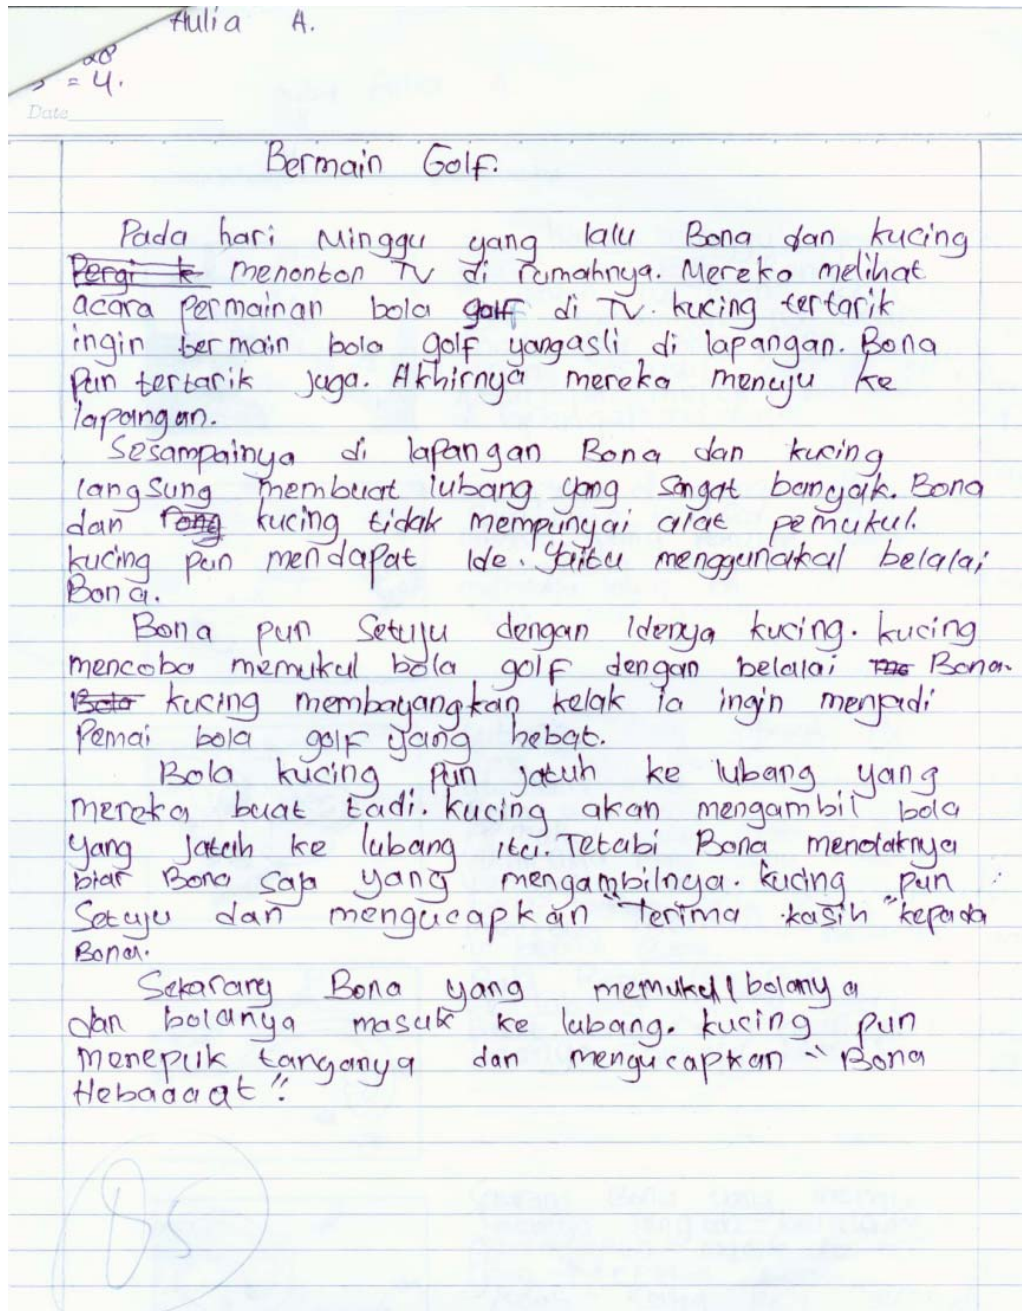 Aulia A.
28
= 4.
Date
Bermain Golf.
Pada hari Minggu yang lalu Bona dan kucing
Pergi k menonton TV di rumahnya. Mereka melihat
acara Permainan bola golf di TV. kucing tertarik
ingin bermain bola golf yangasli di lapangan. Bona
Pun tertarik juga. Akhirnya mereka menuju ke
lapangan.
Sesampainya di lapangan Bona dan kucing
langsung membuat lubang yang sangat banyak. Bona
dan kucing tidak mempunyai alat pemukul.
kucing pun mendapat Ide. Yaitu menggunakal belalai
Bona.
Bona pun Setuju dengan Idenya kucing. kucing
mencoba memukul bola golf dengan belalai Bona.
Bola kucing membayangkan kelak Ia ingin menjadi
Pemai bola golf yang hebat.
Bola kucing pun jatuh ke lubang yang
mereka buat tadi. kucing akan mengambil bola
yang jatuh ke lubang itu. Tetabi Bona menolaknya
biar Bona saja yang mengambilnya. kucing pun
Setuju dan mengucapkan "Terima kasih" kepada
Bona.
Sekarang Bona yang memukul bolanya
dan bolanya masuk ke lubang. kucing pun
menepuk tanganya dan mengucapkan "Bona
Hebaaaat".
85